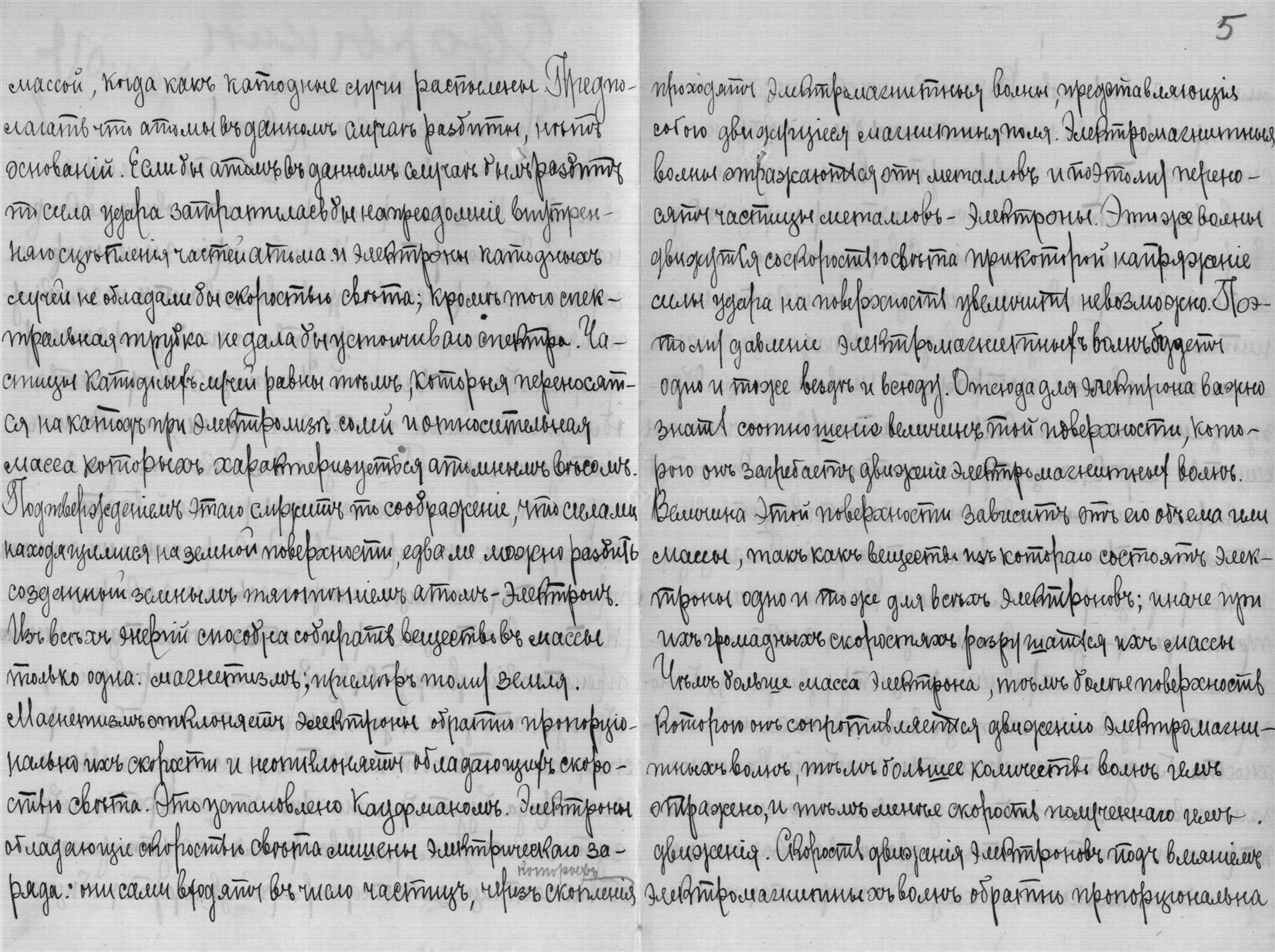 массой, когда какъ катодные лучи распылены Предпо-
лагать что атомы въ данномъ случаѣ разбиты, нѣтъ
основаній. Если бы атомъ въ данномъ случаѣ былъ разбитъ
то сила удара затратилась бы на преодолніе внутрен-
няго сцѣпленія частей атома и электроны катодныхъ
лучей не обладали бы скоростью свѣта; кромѣ того спек-
тральная трубка не дала бы устойчиваго спектра. Ча-
стицы катодныхъ лучей равны тѣмъ, которыя переносят-
ся на катодъ при электролизѣ солей и относительная
масса которыхъ характеризуеться атомнымъ вѣсомъ.
Подтвержденіемъ этаго служитъ то соображеніе, что силами
находящимися на земной поверхности, едва ли можно разбить
созданный земнымъ тяготѣніемъ атомъ-электронъ.
Изъ всѣхъ энергій способна собирать вещество въ массы
только одна: магнетизмъ; примѣръ тому земля.
Магнетизмъ отклоняетъ электроны обратно пропорціо-
нально ихъ скорости и неотклоняетъ обладающихъ скоро-
стью свѣта. Это установлено Кауфманомъ. Электроны
обладающіе скоростью свѣта лишены электрическаго за-
которыхъ
ряда: они сами входятъ въ число частицъ, черезъ скопленія
5
проходятъ электромагнитныя волны, представляющія
собою движущіеся магнитныя поля. Электромагнитныя
волны отражаются отъ металловъ и поэтому перено-
сятъ частицы металловъ - электроны. Эти же волны
движутся со скоростью свѣта при которой напряженіе
силы удара на поверхность увеличить невозможно. Поэ-
тому давленіе электромагнитныхъ волнъ будетъ
одно и тоже вездѣ и всюду. Отсюда для электрона важно
знать соотношеніе величинъ той поверхности, кото-
рою онъ загребаетъ движеніе электромагнитныхъ волнъ.
Величина этой поверхности зависитъ отъ его объема или
массы, такъ какъ вещество изъ котораго состоятъ элек-
троны одно и тоже для всѣхъ электроновъ; иначе при
ихъ громадныхъ скоростяхъ разрушатся ихъ массы
Чѣмъ больше масса электрона, тѣмъ более поверхность
которою онъ сопротивляется движенію электромагни-
тныхъ волнъ, тѣмъ большее количество волнъ имъ
отражено, и тѣмъ менѣе скорость полученнаго имъ
движенія. Скорость движенія электроновъ подъ вліяніемъ
электромагнитныхъ волнъ обратно пропорціональна